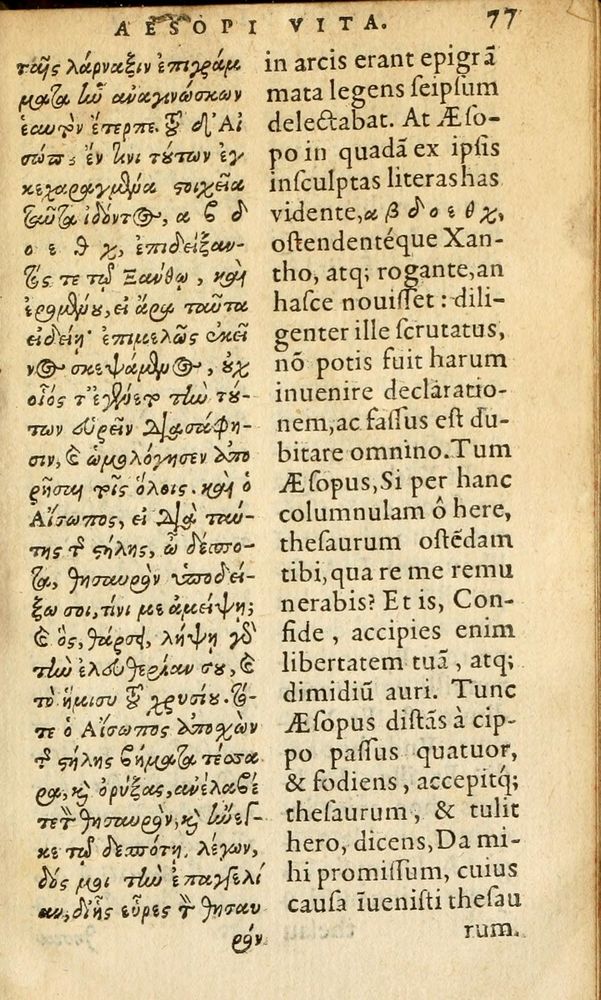 AESOPI VITA. 77
ταῖς λάρναξιν ἐπιγράμ
ματα ἦν ἀναγινώσκων
ἑαυτὸν ἔτερπε. τοῦ δ' Αἰ
σώπου ἔν τινι τούτων ἐγ
κεχαραγμένα στοιχεῖα
ταῦτα ἰδόντος, α β δ
ο ε θ χ, ἐπιδείξαν-
τός τε τῷ Ξάνθῳ, καὶ
ἐρομένου, εἰ ἄρα ταῦτα
εἰδείη· ἐπιμελῶς ἐκεῖ
νος σκεψάμενος, οὐχ
οἷός τ' ἐγένετο τὴν τού-
των εὑρεῖν διασάφη-
σιν, καὶ ὡμολόγησεν ἀπο
ρῆσαι τοῖς ὅλοις. καὶ ὁ
Αἴσωπος, εἰ διὰ ταύ-
της τῆς στήλης, ὦ δέσπο-
τα, θησαυρὸν ὑποδεί-
ξω σοι, τίνι με ἀμείψῃ;
καὶ ὅς, θάρσει, λήψῃ γὰρ
τὴν ἐλευθερίαν σου, καὶ
τὸ ἥμισυ τοῦ χρυσίου. τό-
τε ὁ Αἴσωπος ἀποχὼν
τῆς στήλης βήματα τέσσα
ρα, καὶ ὀρύξας, ἀνέλαβέ
τε τὸν θησαυρὸν, καὶ ἤνεγ-
κε τῷ δεσπότῃ, λέγων,
δός μοι τὴν ἐπαγγελί
αν, δι' ἧς εὗρες τὸν θησαυ
ρόν.
in arcis erant epigrã
mata legens ſeipſum
delectabat. At Æſo-
po in quadã ex ipſis
inſculptas literas has
vidente, α β δ ο ε θ χ,
oſtendentéque Xan-
tho, atq; rogante, an
haſce nouiſſet : dili-
genter ille ſcrutatus,
nõ potis fuit harum
inuenire declaratio-
nem, ac faſſus eſt du-
bitare omnino. Tum
Æſopus, Si per hanc
columnulam ô here,
theſaurum oſtẽdam
tibi, qua re me remu
nerabis? Et is, Con-
fide, accipies enim
libertatem tuã, atq;
dimidiũ auri. Tunc
Æſopus diſtãs à cip-
po paſſus quatuor,
& fodiens, accepitq́;
theſaurum, & tulit
hero, dicens, Da mi-
hi promiſſum, cuius
cauſa ĩueniſti theſau
rum.